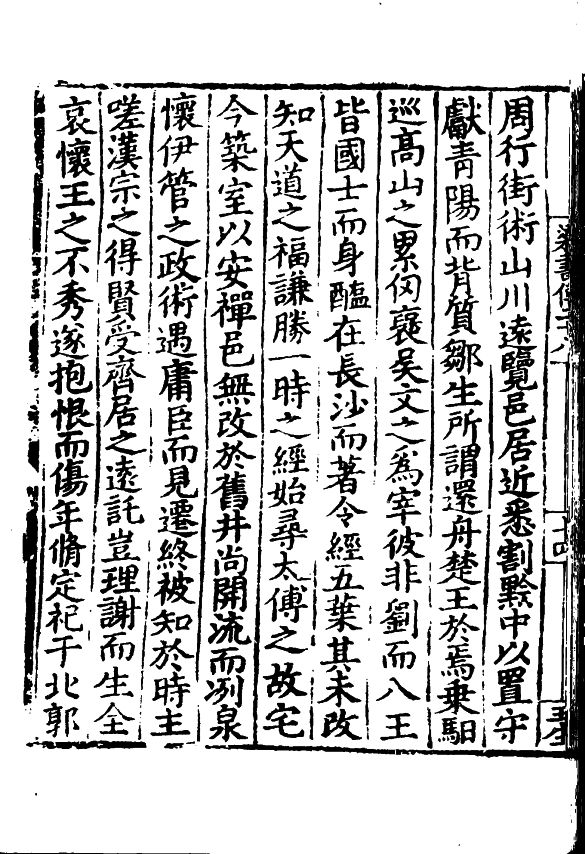 周行街術山川遠覽邑居近悉割黔中以置守
獻青陽而背質鄒生所謂還舟楚王於焉乗駬
巡高山之累仞襄吴文之爲宰彼非劉而八王
皆國士而身醢在長沙而著令經五葉其未改
知天道之福謙勝一時之經始尋太傅之故宅
今築室以安禪邑無改於舊井尚開流而冽泉
懷伊管之政術遇庸臣而見遷終被知於時主
嗟漢宗之得賢受齊居之遠託豈理謝而生全
哀懷王之不秀遂抱恨而傷年脩定祀于北郭